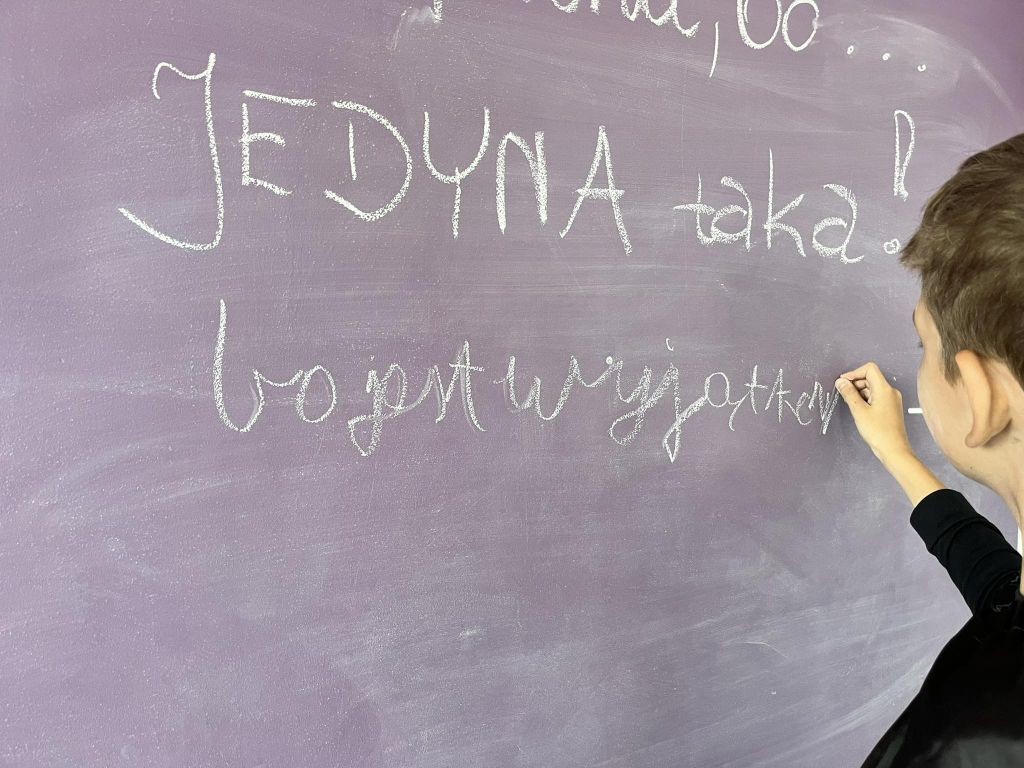 bo...
JEDYNA taka!
bo jest wyjątkow